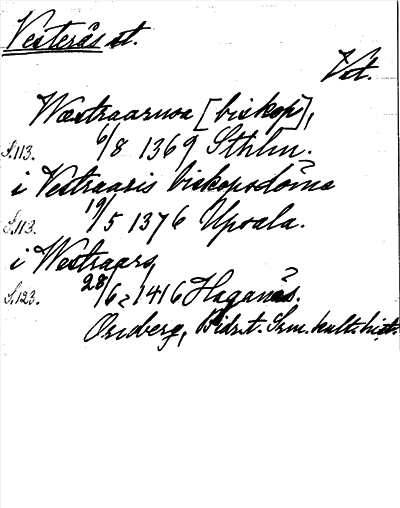 Vesterås st.
Vst.
Wæstraarusa [biskop],
S.113. 6/8 1369 Sthlm.
i Vestraaris biskopsdöme
S.113. 19/5 1376 Upsala.
i Westraars
S.123. 28/6 1416 Haganäs.
Bidr. t. Srm. kult. hist.